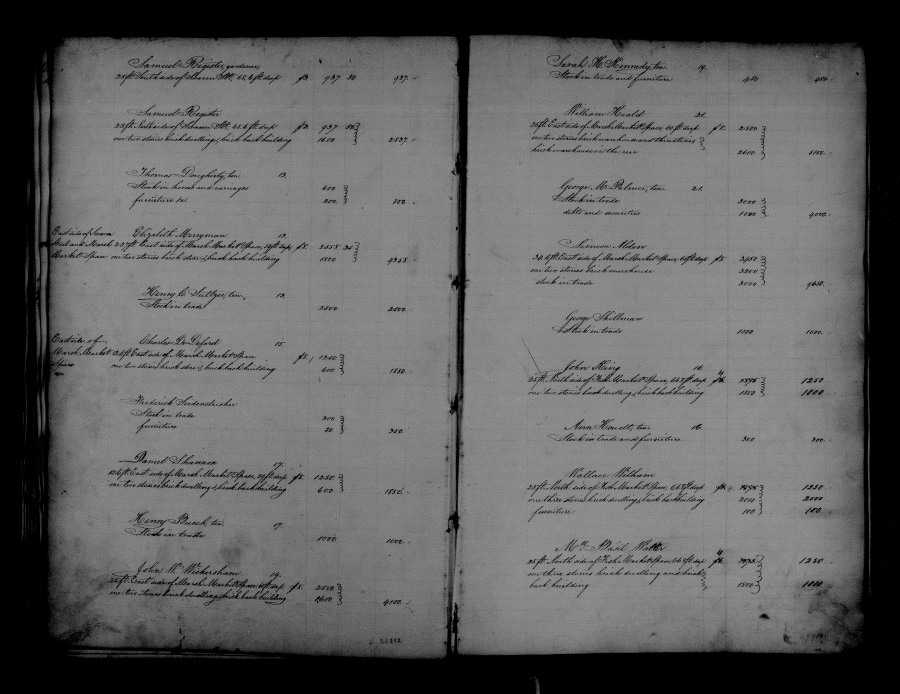 Samuel Register, gardener,
25 ft. South side of Swann St., 65.6 ft. deep f3. 937 50 937.
Samuel Register
25 ft. South side of Swann St., 65.6 ft. deep f3. 937 50
one two stories brick dwelling, brick back building 1600 2537.
Thomas Dougherty, ten 13.
Stock in horses and carriages 600
furniture &c 200 800.
Elizabeth Merryman 13.
East side of Swann
Street and Marsh 23.7 ft. East side of Marsh Market Space, 59 ft. deep f5. 2558 25
Market Space one two stories brick store, & brick back building 1800 4358.
Henry C. Sultzer, ten. 13.
Stock in trade 2500 2500.
Charles D. Deford 15.
East side of
Marsh Market 12.6 ft. East side of Marsh Market Space f5. 1250
Space one two stories brick store, & brick back building 600 1850.
Frederick
Stock in trade 300
furniture 50 350.
Daniel Shannon 17.
12.6 ft. East side of Marsh Market Space, 50 ft. deep f5. 1250
one two stories brick dwelling, & brick back building 600 1850.
Henry Busch, ten 17.
Stock in trade 1000 1000.
John W. Wickersham 19.
25 ft. East side of Marsh Market Space, 60 ft. deep f5. 2500
one two stories brick dwelling, brick back building 1600 4100.
Sarah H. Kennedy, ten 19.
Stock in trade and furniture 450 450.
William Heald 21.
25 ft. East side of Marsh Market Space, 60 ft. deep f5. 2500
one two stories brick warehouse and three stories
brick warehouse in the rear 2600 5100.
George M. Palmer, ten 21.
Stock in trade 3000
debts and securities 1000 4000.
Simeon Alden
34.6 ft. East side of Marsh Market Space, 60 ft. deep f5. 3450
one two stories brick warehouse 3200
stock in trade 3000 9650.
George Skillman
Stock in trade 1000 1000.
John King 16.
25 ft. North side of Fish Market Space, 66.5 ft. deep 1250
one two stories brick dwelling, brick back building 1800 1800
Ann Howell, ten 16.
Stock in trade and furniture 300 300.
Wallace Witham
25 ft. North side of Fish Market Space, 66.5 ft. deep 1250
one three stories brick dwelling, brick back building 2000 2000
furniture 100 100.
Basil
25 ft. North side of Fish Market Space, 66 ft. deep 1250
one three stories brick dwelling and brick
back building 1800 1800